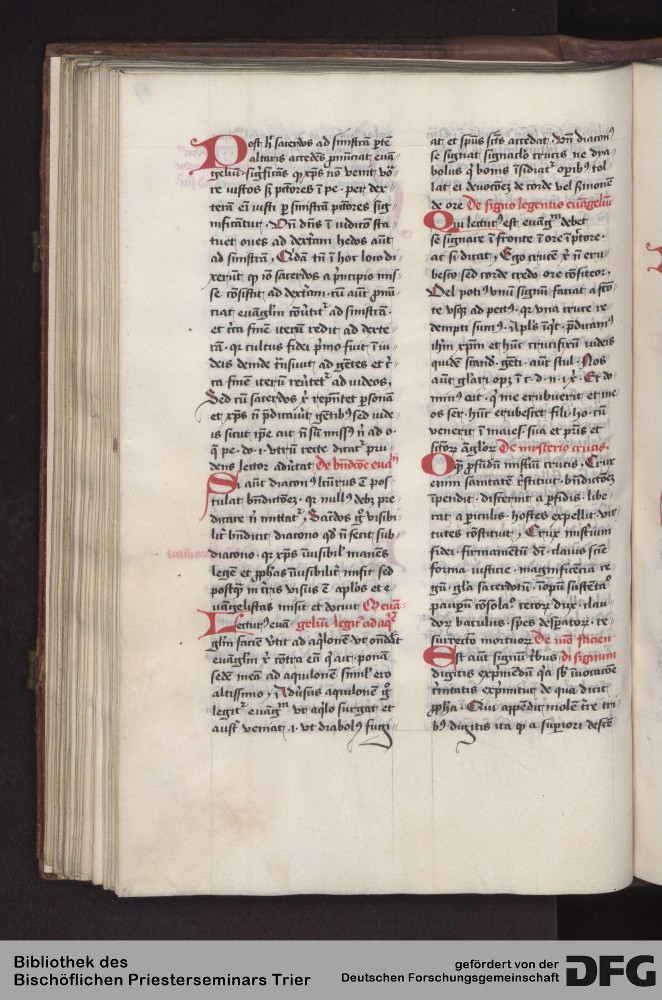 Post h sacerdos ad sinistrā ptē
altaris accedēs ꝓnūciat euā
geliū . significās ꝙ xp̄s nō venit vo
re iustos sꝫ pctōres ī pe . per dex
terā em̄ iusti ꝑ sinistrā pctōres sig
nificātur . Vn̄ dn̄s ī iudicō sta
tuet oues ad dextrām hedos aūt
ad sinistrā , Qͥdā tn̄ ī hoc loco di
xerūt ꝙ nō sacerdos a pͥncipio mis
se cōsistit ad dextrām . cū aūt ꝓnū
ciat euāgliū cōuertit ad sinistrā .
et circa finē iterū redit ad dexte
rā . qꝛ cultus fidei pͥmo fuit ī iu
deis deinde trāsiuit ad gētes et c
ca finē iterū reuertet ad iudeos ,
Sed cū sacerdos x repn̄tet ꝑsonā
et xp̄s nō pͥdicauit gētibꝰ sed iude
is sicut ipē ait nō sū missꝰ nͥ ad o .
ꝗ pe . do . i . vtrū recte dicat pru
dens lector aduertat De bn̄dcōe euāⁱⁱ
Si aūt diaconꝰ lcturus ē pos
tulat bn̄dictōeꝫ . qꝛ nullꝰ debꝫ pre
dicare nͥ mittat , Sacdos gͦ visibi
lit bn̄dicit diacono qd̄ nō fecit sub
diacono . qꝛ xp̄s īuisibilͥ manēs
legē et ꝓphas īuisibilit misit sed
postꝙ̄ in terris visus ē aplōs et e
uāgelistas misit et docuit Qͦ euā
Lecturꝰ euā geliū legit ad aqͥ
gliū faciē vertit ad aqͥlonē vt ondāt
euāgliū x contra eū ꝗ ait . ponā
sedē meā ad aquilonē similis ero
altissimo , Aduersus aquilonē gͦ
legit euāgᵐ vt aqͥlo surgat et
aust veniat .i. vt diabolꝰ fugi
at et spūs scūs accedat . Vn̄ diaconꝰ
se signat signaclo crucis ne dya
bolus ꝗ bonis īsidiat opibꝰ tol
lat ei deuotōeꝫ de corde vel sermonē
de ore De signo legentis euāgeliū
Qui lecturꝰ est euāgᵐ debet
se signare ī fronte ī ore ī pectore .
ac si dicat , Ego crucē x nō eru
besco sed corde credo ore cōfiteor ,
Vel potiꝰ vnū signū faciat a frō
te vsꝗ ad pectꝰ . qꝛ vna cruce re
dempti sumꝰ . Aplūs īqͥt . p̄dicamꝰ
ihm̄ xpm̄ et hūc crucifixū iudeis
quidē scand . genti . aūt stul . Nos
aūt gl̄ari opꝫ ī c . d . n . i . x . Et do
minꝰ ait . ꝗ me erubuerit et me
os ser . hūc erubescet fili . ho . cū
venerit ī maies . sua et pris et
sctōꝝ āgloꝝ De misterio crucis .
O ꝙ̄ ꝓfūdū mistiū crucis . Crux
enim sanitatē restituit . bn̄dictōeꝫ
īpendit . discernit a perfidis . libe
rat a periculis . hostes expellit . vir
tutes cōstituit , Crux misteriū
fidei . firmamētū dī . clauis sciē
forma iusticie . magnificēcia re
gū . glā sacerdotū . īopū sustētatō
paupū cōsolatō . cecoꝝ dux . clau
doꝝ baculus . spes desperatoꝝ . re
surrecto mortuoꝝ De mō facien
Est aūt signū crucis di signum
digitis exprimēdū qꝛ sb īuocatōne
trinitatis exprimitur de qua dicit
ꝓpha . Qui appēdit molē terre tri
bꝰ digitis ita ꝙ a superiori descē
Bibliothek des
Bischöflichen Priesterseminars Trier
gefördert von der
Deutschen Forschungsgemeinschaft
DFG